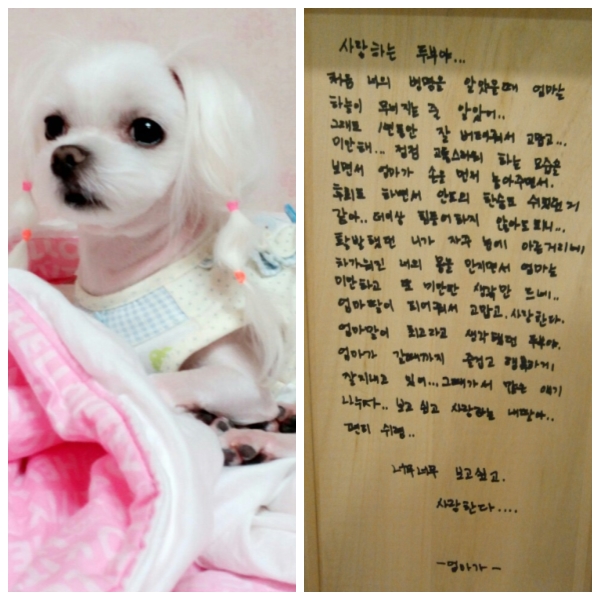 사랑하는 두부야...
처음 너의 병명을 알았을때 엄마는
하늘이 무너지는 줄 알았어..
그래도 1년동안 잘 버텨줘서 고맙고...
미안해... 점점 고통스러워 하는 모습을
보면서 엄마가 손을 먼저 놓아주면서.
후회도 하면서 안도의 한숨도 쉬었던거
같아.. 더이상 힘들어하지 않아도 되니...
활발했던 니가 자꾸 눈에 아른거리네
차가워진 너의 몸을 만지면서 엄마는
미안하고 또 미안한 생각만 드네..
엄마딸이 되어줘서 고맙고.사랑한다.
엄마맘이 최고라고 생각했던 두부야.
엄마가 갈때까지 즐겁고 행복하게
잘지내고 있어...그때가서 많은 얘기
나누자.. 보고 싶고 사랑하는 내딸아..
편히 쉬렴..
너무너무 보고싶고.
사랑한다....
-엄마가-